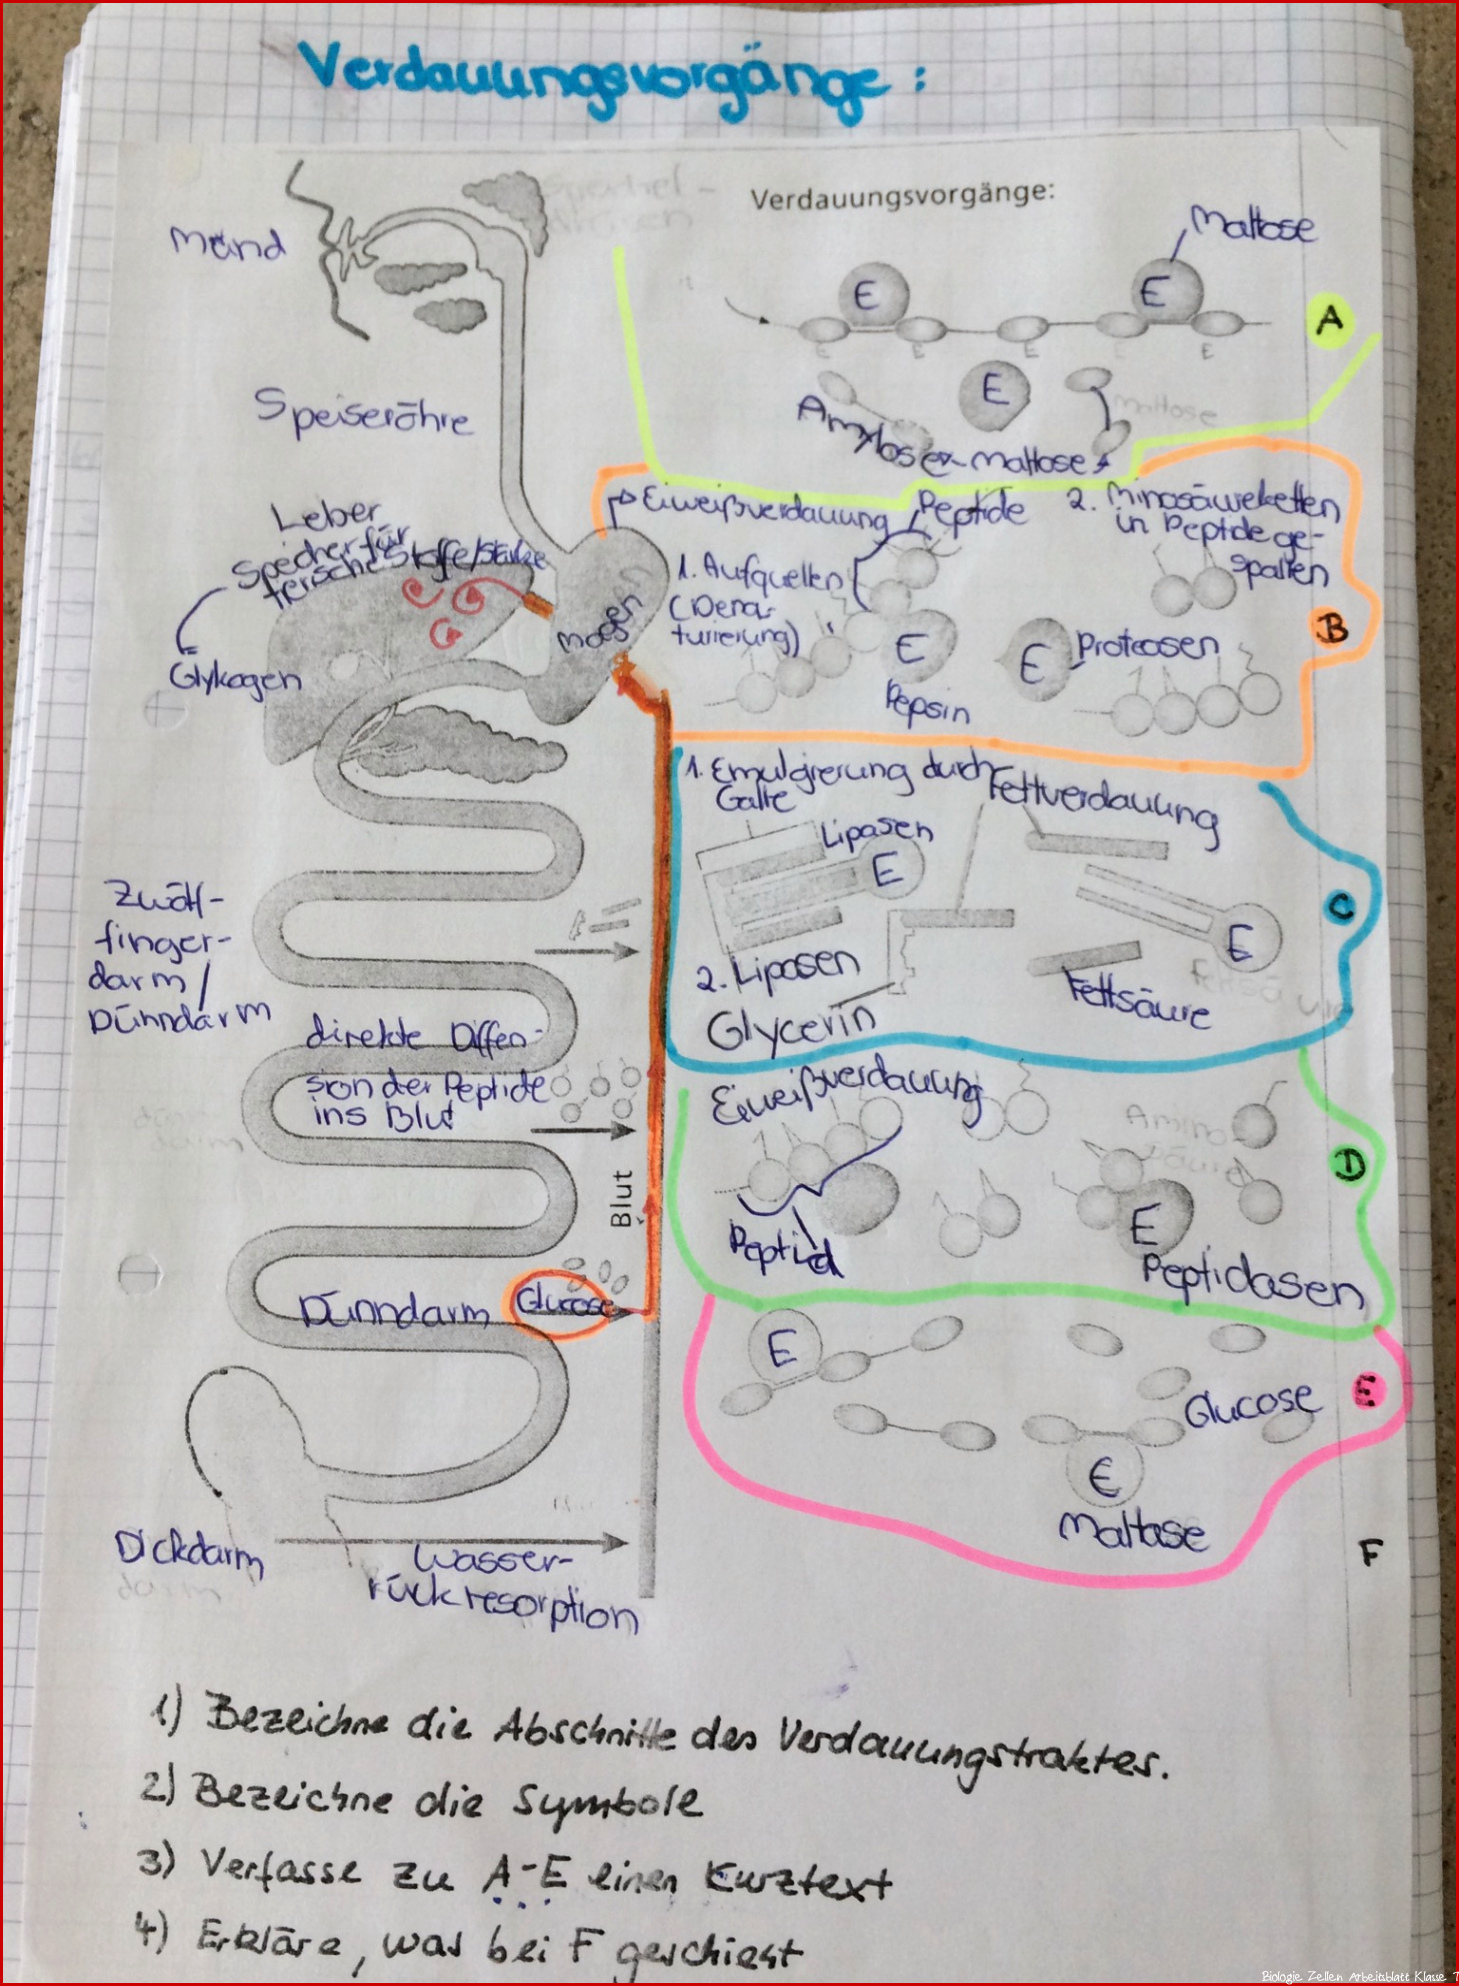 Verdauungsvorgänge:
Verdauungsvorgänge:
Mund
Speiseröhre
Leber
Speicher für
tierische Stoffe/Stärke
Glykogen
Magen
Zwölf-
finger-
darm/
Dünndarm
direkte Diffen-
sion der Peptide
ins Blut
Blut
Dünndarm
Glucose
Dickdarm
Wasser-
rückresorption
Maltose
E
E
A
E
E
E
E
E
E
maltose
Amylose
maltose
Eiweißverdauung
Peptide
2. Minosäureketten
in Peptide ge-
spalten
1. Aufquellen
(Dena-
turierung)
E
E
Proteasen
B
Pepsin
1. Emulgierung durch
Galle
Fettverdauung
Lipasen
E
C
E
2. Lipasen
Fettsäure
Glycerin
Eiweißverdauung
Amino-
säure
D
Peptid
E
Peptidasen
E
Glucose
E
E
Maltase
F
1) Bezeichne die Abschnitte des Verdauungstraktes.
2) Bezeichne die Symbole
3) Verfasse zu A-E einen Kurztext
4) Erkläre, was bei F geschieht
Biologie Zellen Arbeitsblatt Klasse 7